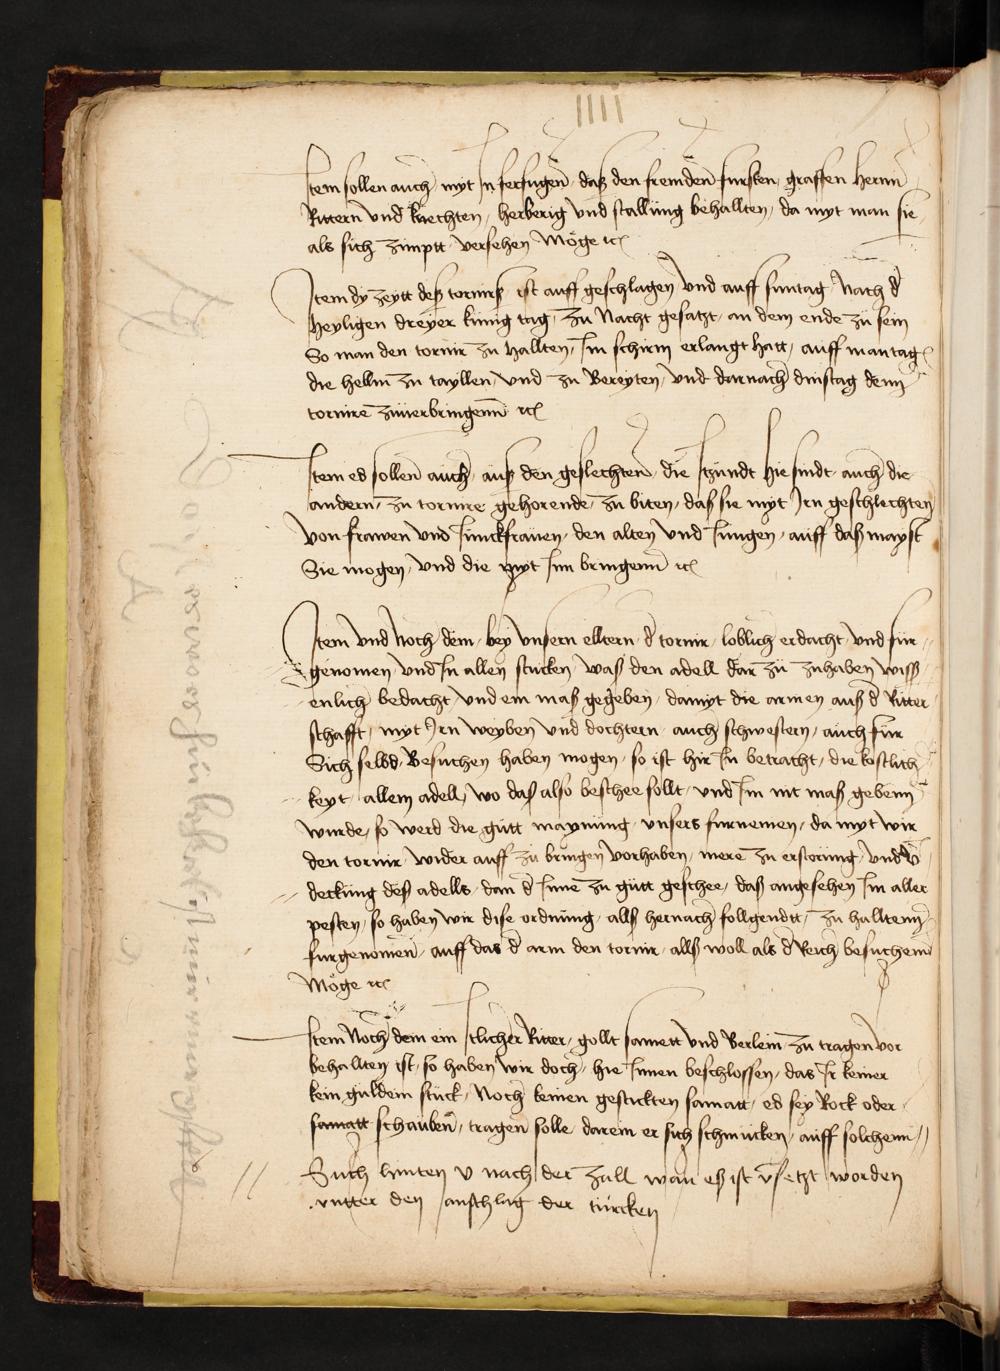 IIII
Item sollen auch myt In ferfugen das den fremden fursten graffen Hernn
Rittern und knechten herberig und stallung behallten da myt man sie
als sich zimptt versehen Möge etc
Item dy zeytt des tornirs ist auff geschlagen und auff suntag Nach d
Heyligen dreyer kunig tag zu Nacht gesatzt an dem ende zu sein
So man den tornir zu Hallten Im schirm erlangt hatt auff mantag
die hellm zu tayllen und zu Bereyten und darnach dinstag denn
tornire zuuerbringenn etc
Item es sollen auch aus den geslechten die Itzundt hie sindt auch die
andern zu tornire gehorende zu biten das sie myt Irn geschlechten
von frawen und Iunckfrauen den alten und Iungen auff das mayst
Sie mogen und die myt Inn bringenn etc
Item und Noch dem bey unsern elltern d tornir loblich erdacht und fur
genomen und In allen stucken was den adell dar zu zuhaben wiss
enlich bedacht und ein mas gegeben damyt die armen aus d Ritter
schafft myt Irn weyben und dochtern auch schwestern auch fur
Sich selbd Besuchen haben mogen so ist hir In betracht die kostlich
keyt allem adell wo das also beschee sollt und Im nit mas gebenn
wurde so werd die gutt maynung unsers furnemen da myt wir
den tornir wider auff zu bringen vorhaben mere zu erstorung und
deckung des adells dan d Inne zu gutt geschee das angesehen Im aller
pesten so haben wir dise ordnung alls hernach follgendtt zu halltenn
furgenomen auff das d arm den tornir alls woll als d Reich besuchenn
Möge etc
Item Noch dem ein Itlicher Ritter gollt samett und Berlein zu tragen vor
behallten ist so haben wir doch hie Innen beschlossen das Ir keiner
kein gulden stuck Noch keinen gestickten samatt es sey Rock oder
samatt schauben tragen solle darein er sich schmucken auff solchenn
Such hinten v nach der zall wan es ist v̄setzt worden
untter den anschlag der türcken